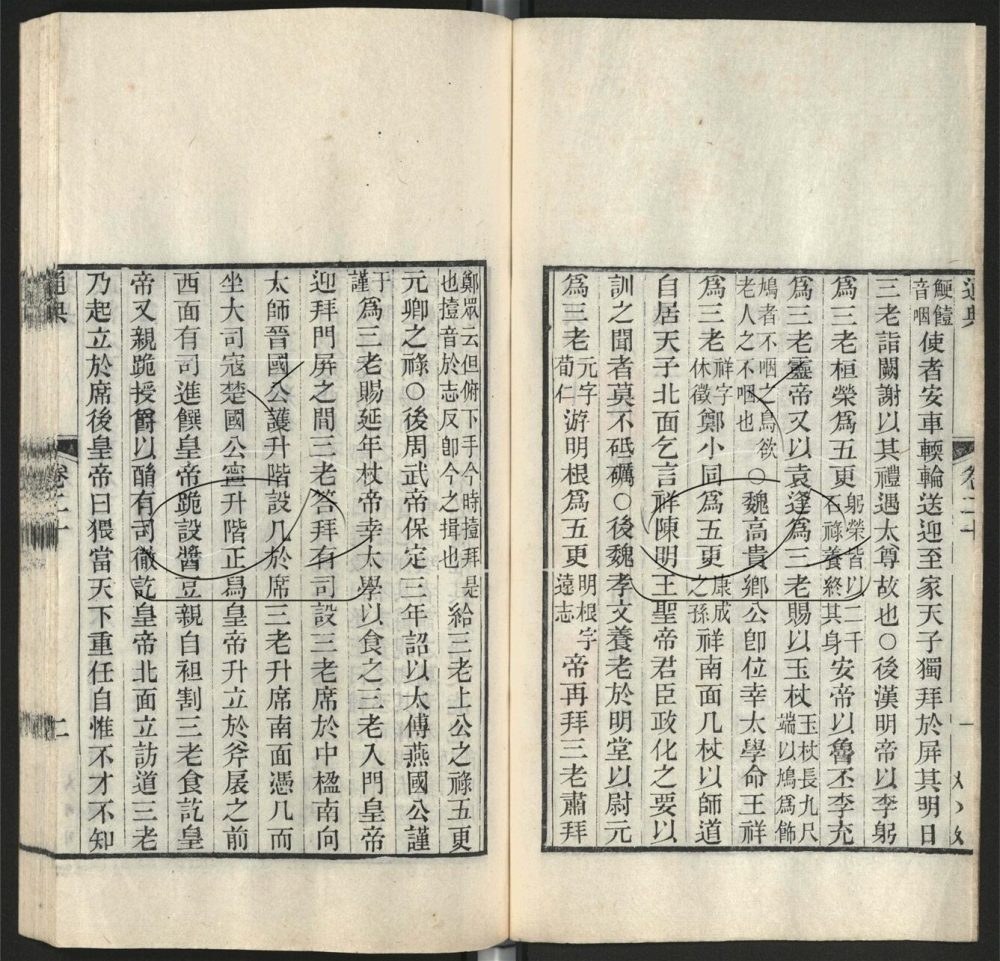 通典
卷二十
一
鯁饐音咽使者安車輭輪送迎至家天子獨拜於屏其明日
三老詣闕謝以其禮遇太尊故也○後漢明帝以李躬
為三老桓榮爲五更躬榮皆以二千石祿養終其身安帝以魯丕李充
爲三老靈帝又以袁逢爲三老賜以玉杖玉杖長九尺端以鳩爲飾
鳩者不咽之鳥欲老人之不咽也○魏高貴鄉公卽位幸太學命王祥
爲三老祥字休徵鄭小同爲五更康成之孫祥南面几杖以師道
自居天子北面乞言祥陳明王聖帝君臣政化之要以
訓之聞者莫不砥礪○後魏孝文養老於明堂以尉元
爲三老元字荀仁游明根爲五更明根字遠志帝再拜三老肅拜
鄭眾云但俯下手今時撎拜是也撎音於志反卽今之揖也給三老上公之祿五更
元卿之祿○後周武帝保定三年詔以太傅燕國公謹
于謹爲三老賜延年杖帝幸太學以食之三老入門皇帝
迎拜門屏之間三老答拜有司設三老席於中楹南向
太師晉國公護升階設几於席三老升席南面憑几而
坐大司寇楚國公寧升階正舄皇帝升立於斧扆之前
西面有司進饌皇帝跪設醬豆親自袒割三老食訖皇
帝又親跪授爵以酳有司徹訖皇帝北面立訪道三老
乃起立於席後皇帝曰猥當天下重任自惟不才不知
通典
卷二十
二